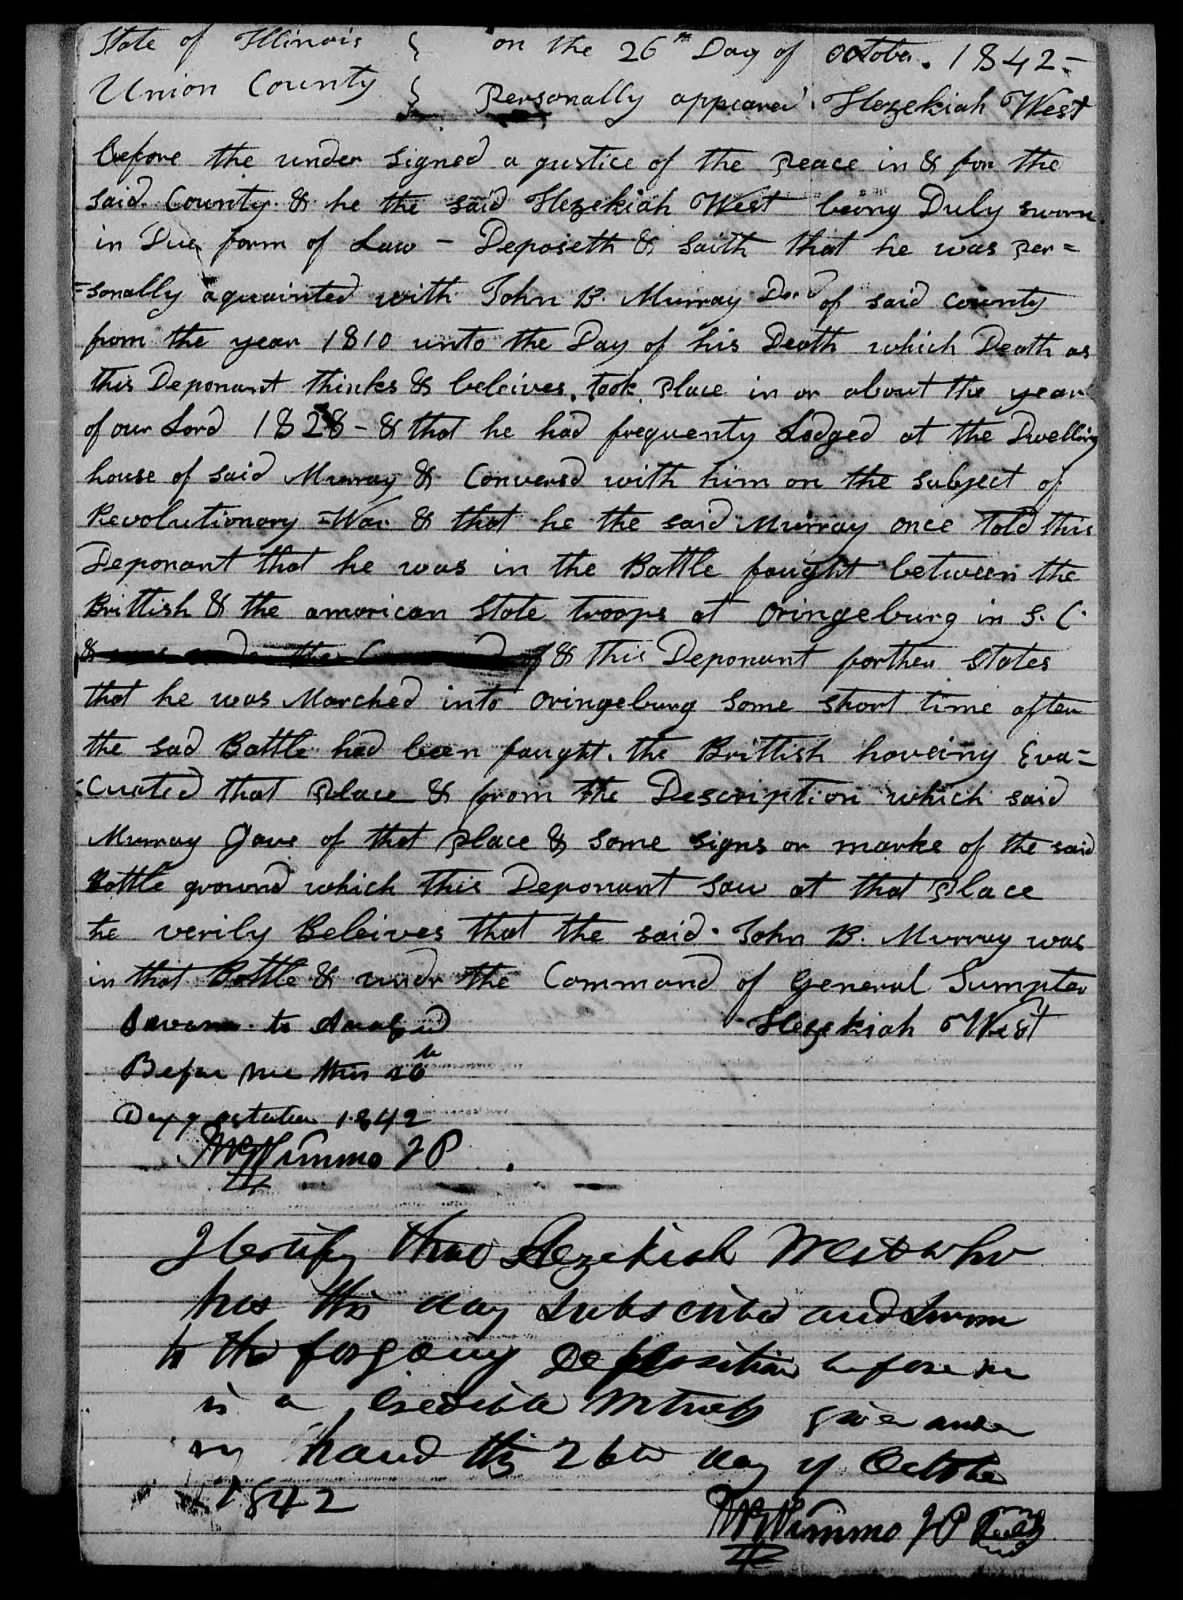 State of Illinois } on the 26th Day of october. 1842 -
Union County } Personally appeared Hezekiah West
before the under signed a justice of the Peace in & for the
said County & he the said Hezekiah West being Duly sworn
in Due form of Law - Deposeth & Saith that he was Per=
=sonally aquainted with John B. Murray Decd of said county
from the year 1810 unto the Day of his Death which Death as
this Deponant thinks & beleives, took Place in or about the year
of our Lord 1828 - & that he had frequenty Lodged at the Dwelling
house of said Murray & Conversd with him on the subject of
Revolutionary War & that he the said Murray once Told this
Deponant that he was in the Battle faught between the
Brittish & the american State troops at Oringeburg in S. C.
& this Deponant forther States
that he was Marched into Oringeburg Some Short time after
the sad Battle had been faught. the Brittish haveing Eva=
=cuated that Place & from the Description which said
Murray Gave of that place & some signs or marke of the said
Battle ground which this Deponant saw at that Place
he verily Beleives that the said John B. Murray was
in that Battle & undr the Command of General Sumpter
Sworn to &
Hezekiah West
Before me this 26th
Day of october 1842
Nimmo JP
I Certify that Hezekiah West who
has this day Subscribed and Sworn
to the forgoing Deposition before me
is a Credible Witness given under
my hand this 26th day of October
1842
Nimmo JP Seal